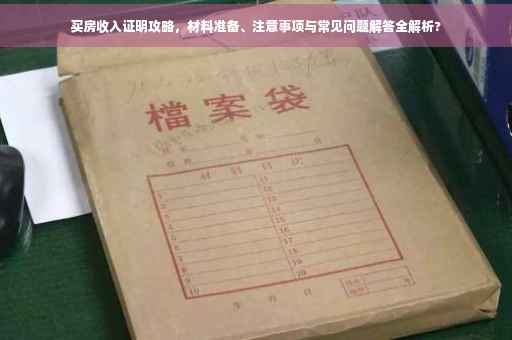 买房收入证明攻略，材料准备、注意事项与常见问题解答全解析?
檔案袋
材料目次
1 11
2 12
3 13
4 14
5 15
6 16
7 17
8 18
9 19
10 20
年 月 日